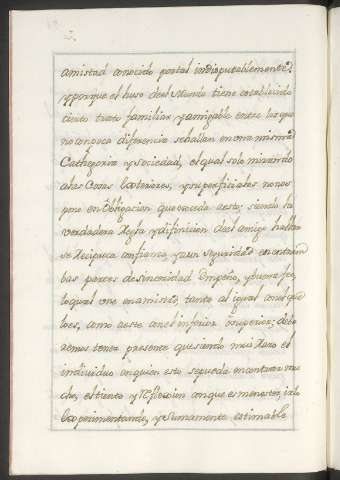 2.
amistad conocido por tal indisputablemente;
y porque el huso del Mundo tiene establecido
cierto trato familiar y amigable entre los que
no con poca diferencia se hallan en una misma
Cathegoria y Sociedad, el qual solo mirando
a las Cosas Exteriores, y superficiales, no nos
pone en Obligacion que exceda a esto; siendo la
verdadera Regla y difinicion del amigo hallar
se reciproca confianza, y aun seguridad en entram
bas partes de sinceridad Empeño, y buena fee,
lo qual une en amistad, tanto al igual con el que
lo es, como a este con el inferior ò superior; debe
remos tener presente que siendo mui Raro el
individuo en quien esto se pueda encontrar mu
cho, el tiento y Reflexion con que es menester, irlo
Experimentando, y Sumamente estimable